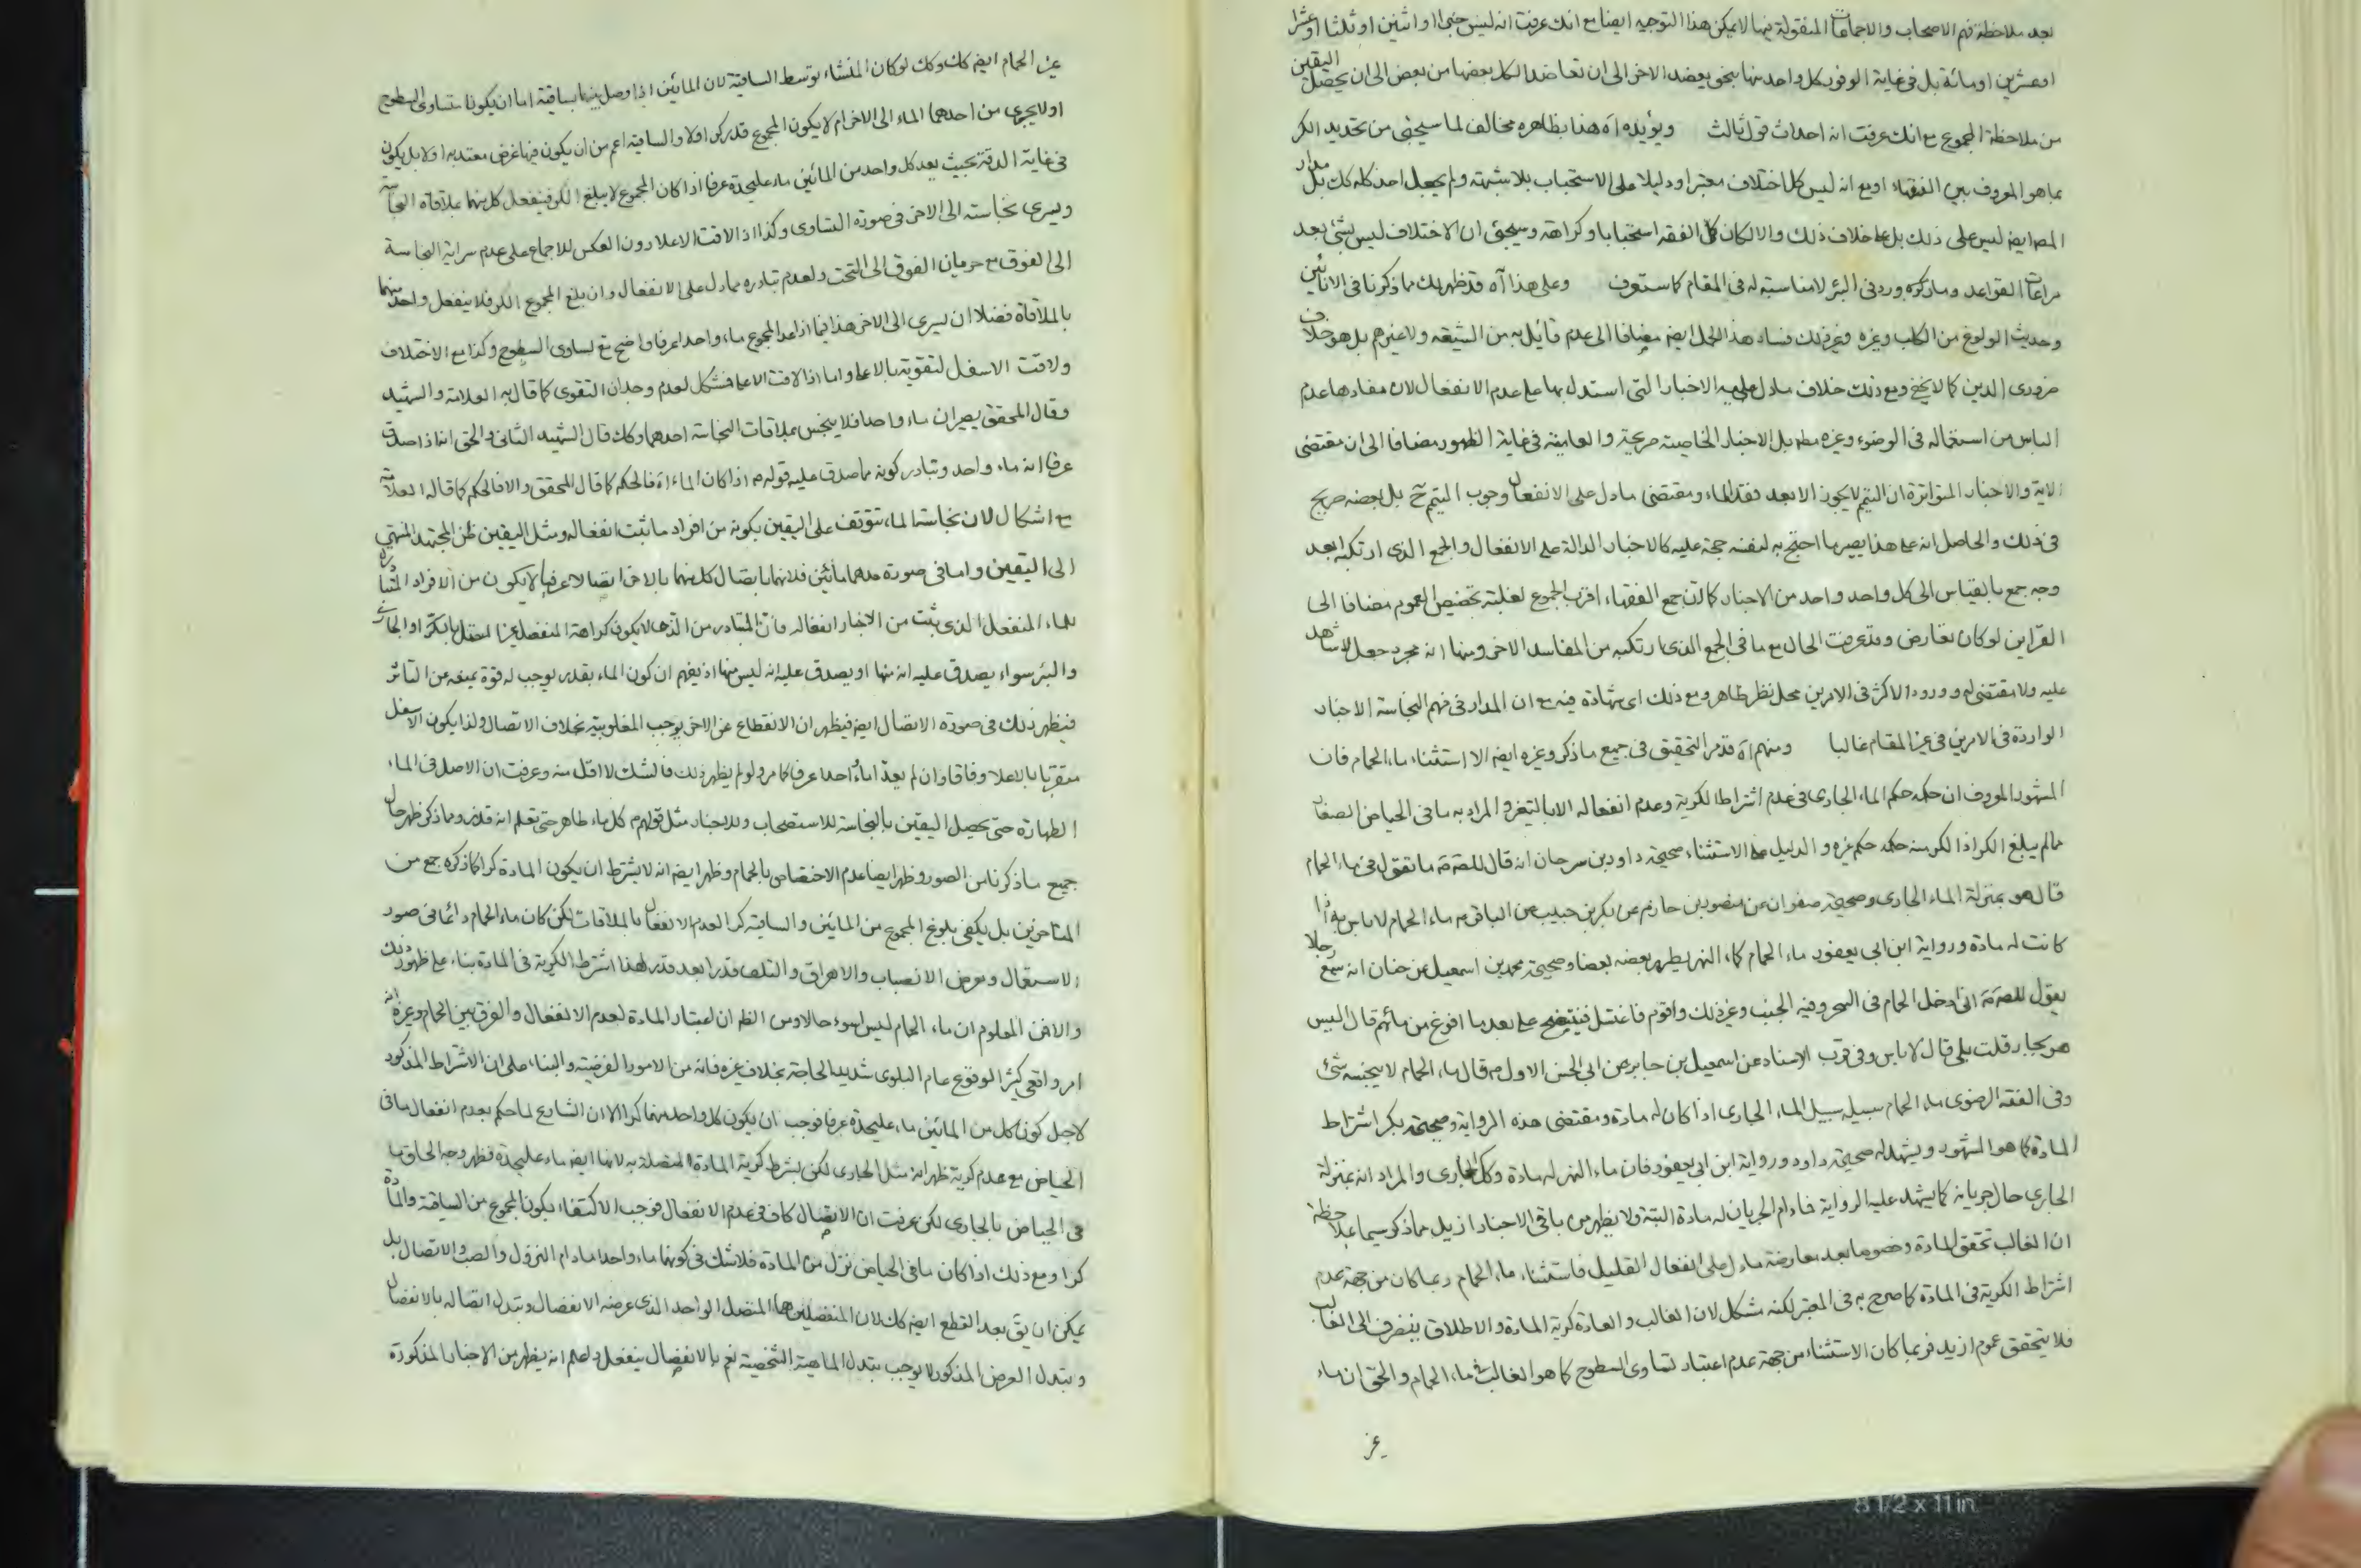 بعد ملاحظة فهم الاصحاب والاجماعات المنقولة فيها لا يمكن هذا التوجيه ايضا مع انك عرفت انه ليس خبرا او اثنين او ثلثا او عشرا
او عشرين او مائة بل في غاية الوفور كل واحد منها بنحو يعضد الاخر الى ان تعاضد الكل بعضها من بعض الى ان يحصل اليقين
من ملاحظة المجموع مع انك عرفت انه احداث قول ثالث ويؤيده آه هذا بظاهره مخالف لما سيجئ من تحديد الكر
بما هو المعروف بين الفقهاء او مع انه ليس كل اختلاف معتبرا ودليلا على الاستحباب بلا شبهة ولم يجعل احد كله كك بل مدار
المص ايض ليس على ذلك بل على خلاف ذلك والا لكان كل الفقه استحبابا وكراهة وسيجئ ان الاختلاف ليس بشئ بعد
مراعات القواعد وما ذكره ورد في البئر لا مناسبة له في المقام كما ستعرف وعلى هذا آه قد ظهر لك مما ذكرنا في الانائين
وحديث الولوغ من الكلب وغيره وغير ذلك فساد هذا الحمل ايض مضافا الى عدم قائل به من الشيعة ولا غيرهم بل هو خلاف
ضروري الدين كما لا يخفى ومع ذلك خلاف ما دل عليه الاخبار التي استدل بها على عدم الانفعال لان مفادها عدم
الباس من استعماله في الوضوء وغيره مط بل الاخبار الخاصية صريحة والعامية في غاية الظهور مضافا الى ان مقتضى
الاية والاخبار المتواترة ان التيمم لا يكون الا بعد فقد الماء ومقتضى ما دل على الانفعال وجوب التيمم ح بل بعضه صريح
في ذلك والحاصل انه على هذا يصير ما احتج به لنفسه حجة عليه كالاخبار الدالة على الانفعال والجمع الذي ارتكبه ابعد
وجه جمع بالقياس الى كل واحد واحد من الاخبار كما ان جمع الفقهاء اقرب الجموع لغلبة تخصيص العموم مضافا الى
القراين لو كان تعارض وقد عرفت الحال مع ما في الجمع الذي ارتكبه من المفاسد الاخر ومنها انه مجرد جعل لا شاهد
عليه ولا مقتضى له وورود الاكثر في الامرين محل نظر ظاهر ومع ذلك اى شهادة فيه مع ان المدار في فهم النجاسة الاخبار
الواردة في الامرين في غير المقام غالبا ومنهم آه قد مر التحقيق في جميع ما ذكر وغيره ايض الا استثناء ماء الحمام فان
المشهور المعروف ان حكمه حكم الماء الجاري في عدم اشتراط الكرية وعدم انفعاله الا بالتغير والمراد به ما في الحياض الصغار
مالم يبلغ الكر اذ الكر منه حكمه حكم غيره والدليل على الاستثناء صحيحة داود بن سرحان انه قال للصادق ما تقول في ماء الحمام
قال هو بمنزلة الماء الجاري وصحيحة صفوان عن منصور بن حازم عن بكر بن حبيب عن الباقر ماء الحمام لا باس به اذا
كانت له مادة ورواية ابن ابي يعفور ماء الحمام كماء النهر يطهر بعضه بعضا وصحيحة محمد بن اسمعيل عن حنان انه سمع رجلا
يقول للصادق اني ادخل الحمام في السحر وفيه الجنب وغير ذلك واقوم فاغتسل فينتضح على بعد ما افرغ من مائهم قال اليس
هو بجار قلت بلى قال لا باس وفي قرب الاسناد عن اسمعيل بن جابر عن ابي الحسن الاول قال ماء الحمام لا ينجسه شئ
وفي الفقه الرضوي ماء الحمام سبيله سبيل الماء الجاري اذا كان له مادة ومقتضى هذه الرواية وصحيحة بكر اشتراط
المادة كما هو المشهور ويشهد له صحيحة داود ورواية ابن ابي يعفور فان ماء النهر له مادة وكك الجاري والمراد انه بمنزلة
الجاري حال جريانه كما يشهد عليه الرواية فما دام الجريان له مادة البتة ولا يظهر من باقي الاخبار ازيد مما ذكر سيما بملاحظة
ان الغالب تحقق المادة وخصوصا بعد معارضة ما دل على انفعال القليل فاستثناء ماء الحمام ربما كان من جهة عدم
اشتراط الكرية في المادة كما صرح به في المعتبر لكنه مشكل لان الغالب والعادة كرية المادة والاطلاق ينصرف الى الغالب
فلا يتحقق عموم ازيد فربما كان الاستثناء من جهة عدم اعتبار تساوى السطوح كما هو الغالب في ماء الحمام والحق ان ماء
غير
غير الحمام ايض كك وكك لو كان المنشاء توسط الساقية لان المائين اذا وصل بينهما بساقية اما ان يكونا متساوى السطوح
او لا يجري من احدهما الماء الى الاخر ام لا يكون المجموع قدر كر او لا والساقية اعم من ان يكون فيها عرض معتد به او لا بل يكون
في غاية الدقة بحيث يعد كل واحد من المائين ماء عليحدة عرفا اذا كان المجموع لا يبلغ الكر فينفعل كل منهما بملاقاة النجاسة
ويسرى نجاسته الى الاخر في صورة التساوى وكذا اذا لاقت الاعلا دون العكس للاجماع على عدم سراية النجاسة
الى الفوق مع جريان الفوق الى التحت ولعدم تبادره مما دل على الانفعال وان بلغ المجموع الكر فلا ينفعل واحد منهما
بالملاقاة فضلا ان يسرى الى الاخر هذا فيما اذا عد المجموع ماء واحدا عرفا واضح مع تساوى السطوح وكذا مع الاختلاف
ولاقت الاسفل لتقويته بالاعلى واما اذا لاقت الاعلى فمشكل لعدم وجدان التقوى كما قال به العلامة والشهيد
وقال المحقق يصيران ماء واحدا فلا ينجس بملاقات النجاسة احدهما وكك قال الشهيد الثاني والحق انه اذا صدق
عرفا انه ماء واحد وتبادر كونه مما صدق عليه قوله اذا كان الماء آه فالحكم كما قال المحقق والا فالحكم كما قاله العلامة
مع اشكال لان نجاسة الماء تتوقف على اليقين بكونه من افراد ما ثبت انفعاله ومثل اليقين ظن المجتهد المنتهي
الى اليقين واما في صورة عدهما مائين فلانهما باتصال كل منهما بالاخر اتصالا عرفيا لا يكون من الافراد المتبادرة
للماء المنفعل الذي ثبت من الاخبار انفعاله
والبئر سواء يصدق عليه انه منها او يصدق عليه انه ليس منها اذ يفهم ان كون الماء بقدر يوجب له قوة تمنعه عن التاثر
فيظهر ذلك في صورة الاتصال ايض فيظهر ان الانقطاع عن الاخر يوجب المغلوبية بخلاف الاتصال ولذا يكون الاسفل
متقويا بالاعلا وفاقا وان لم يعدا ماء واحدا عرفا كما مر ولو لم يظهر ذلك فالشك لا اقل منه وعرفت ان الاصل في الماء
الطهارة حتى يحصل اليقين بالنجاسة للاستصحاب وللاخبار مثل قولهم كل ماء طاهر حتى تعلم انه قذر ومما ذكر ظهر حال
جميع ما ذكرنا من الصور وظهر ايضا عدم الاختصاص بالحمام وظهر ايض انه لا يشترط ان يكون المادة كرا كما ذكره جمع من
المتاخرين بل يكفي بلوغ المجموع من المائين والساقية كرا لعدم الانفعال بالملاقات لكن كان ماء الحمام دائما في صدد
الاستعمال ومعرض الانصباب والاهراق والتلف قدرا بعد قدر لهذا اشترط الكرية في المادة بناء على ظهور ذلك
والا فمن المعلوم ان ماء الحمام ليس اسوء حالا ومن الظ ان اعتبار المادة لعدم الانفعال والفرق بين الحمام وغيره انه
امر واقعي كثير الوقوع عام البلوى شديد الحاجة بخلاف غيره فانه من الامور الفرضية والبناء على ان الاشتراط المذكور
لاجل كون كل من المائين ماء عليحدة عرفا فوجب ان يكون كل واحد منهما كرا الا ان الشارع لما حكم بعدم انفعال ما في
الحياض مع عدم كريته ظهر انه مثل الجاري لكن بشرط كرية المادة المتصلة به لانها ايض ماء عليحدة فظهر وجه الحاق ما
في الحياض بالجاري لكن عرفت ان الاتصال كاف في عدم الانفعال فوجب الاكتفاء بكون المجموع من الساقية والمادة
كرا ومع ذلك اذا كان ما في الحياض نزل من المادة فلا شك في كونهما ماء واحدا مادام النزول والصب والاتصال بل
يمكن ان يق بعد القطع ايض كك لان المنفصلين هما المتصل الواحد الذي عرضه الانفصال وتبدل اتصاله بالانفصال
وتبدل العرض المذكور لا يوجب تبدل الماهية الشخصية نعم بالانفصال ينفعل واعلم انه يظهر من الاخبار المذكورة